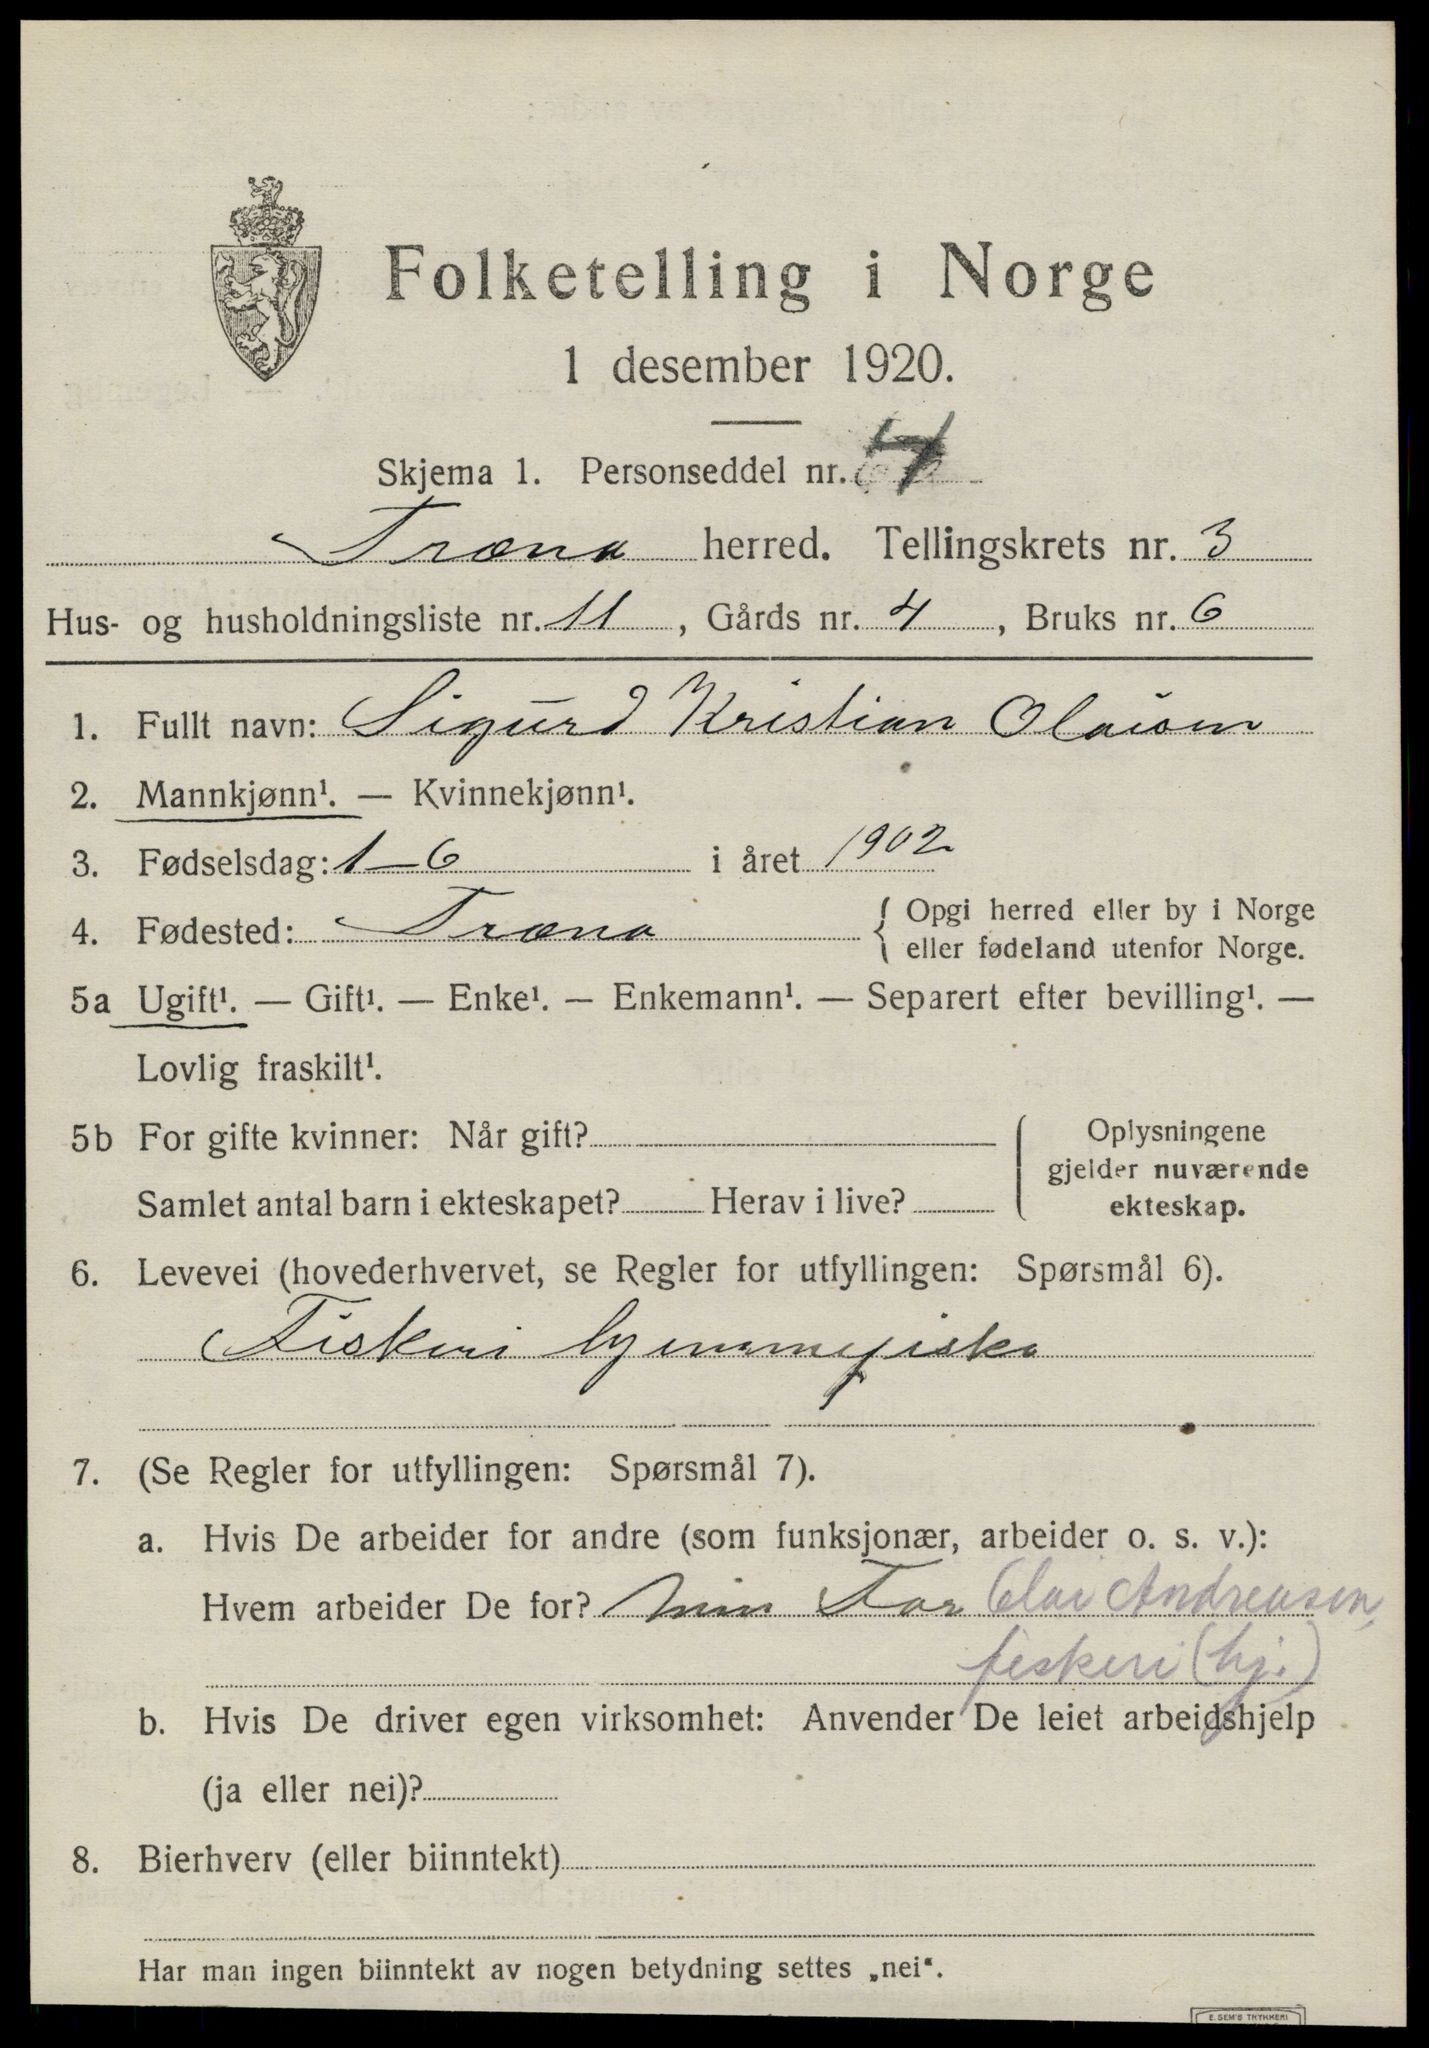 Folketelling i Norge
1 desember 1920.
Skjema 1. Personseddel nr. 4
Træna herred. Tellingskrets nr. 3
Hus- og husholdningsliste nr. 11, Gårds nr. 4, Bruks nr. 6
1. Fullt navn: Sigurd Kristian Olaisen
2. Mannkjønn¹. — Kvinnekjønn¹.
3. Fødselsdag: 1-6 i året 1902
4. Fødested: Træna { Opgi herred eller by i Norge
eller fødeland utenfor Norge.
5a Ugift¹. — Gift¹. — Enke¹. — Enkemann¹. — Separert efter bevilling¹. —
Lovlig fraskilt¹.
5b For gifte kvinner: Når gift?
Samlet antal barn i ekteskapet? Herav i live?
Oplysningene
gjelder nuværende
ekteskap.
6. Levevei (hovederhvervet, se Regler for utfyllingen: Spørsmål 6).
Fiskeri hjemmefiske
7. (Se Regler for utfyllingen: Spørsmål 7).
a. Hvis De arbeider for andre (som funksjonær, arbeider o. s. v.):
Hvem arbeider De for? Min Far Olai Andreasen,
fiskeri (hj.)
b. Hvis De driver egen virksomhet: Anvender De leiet arbeidshjelp
(ja eller nei)?
8. Bierhverv (eller biinntekt)
Har man ingen biinntekt av nogen betydning settes „nei“.
E. SEM'S TRYKKERI